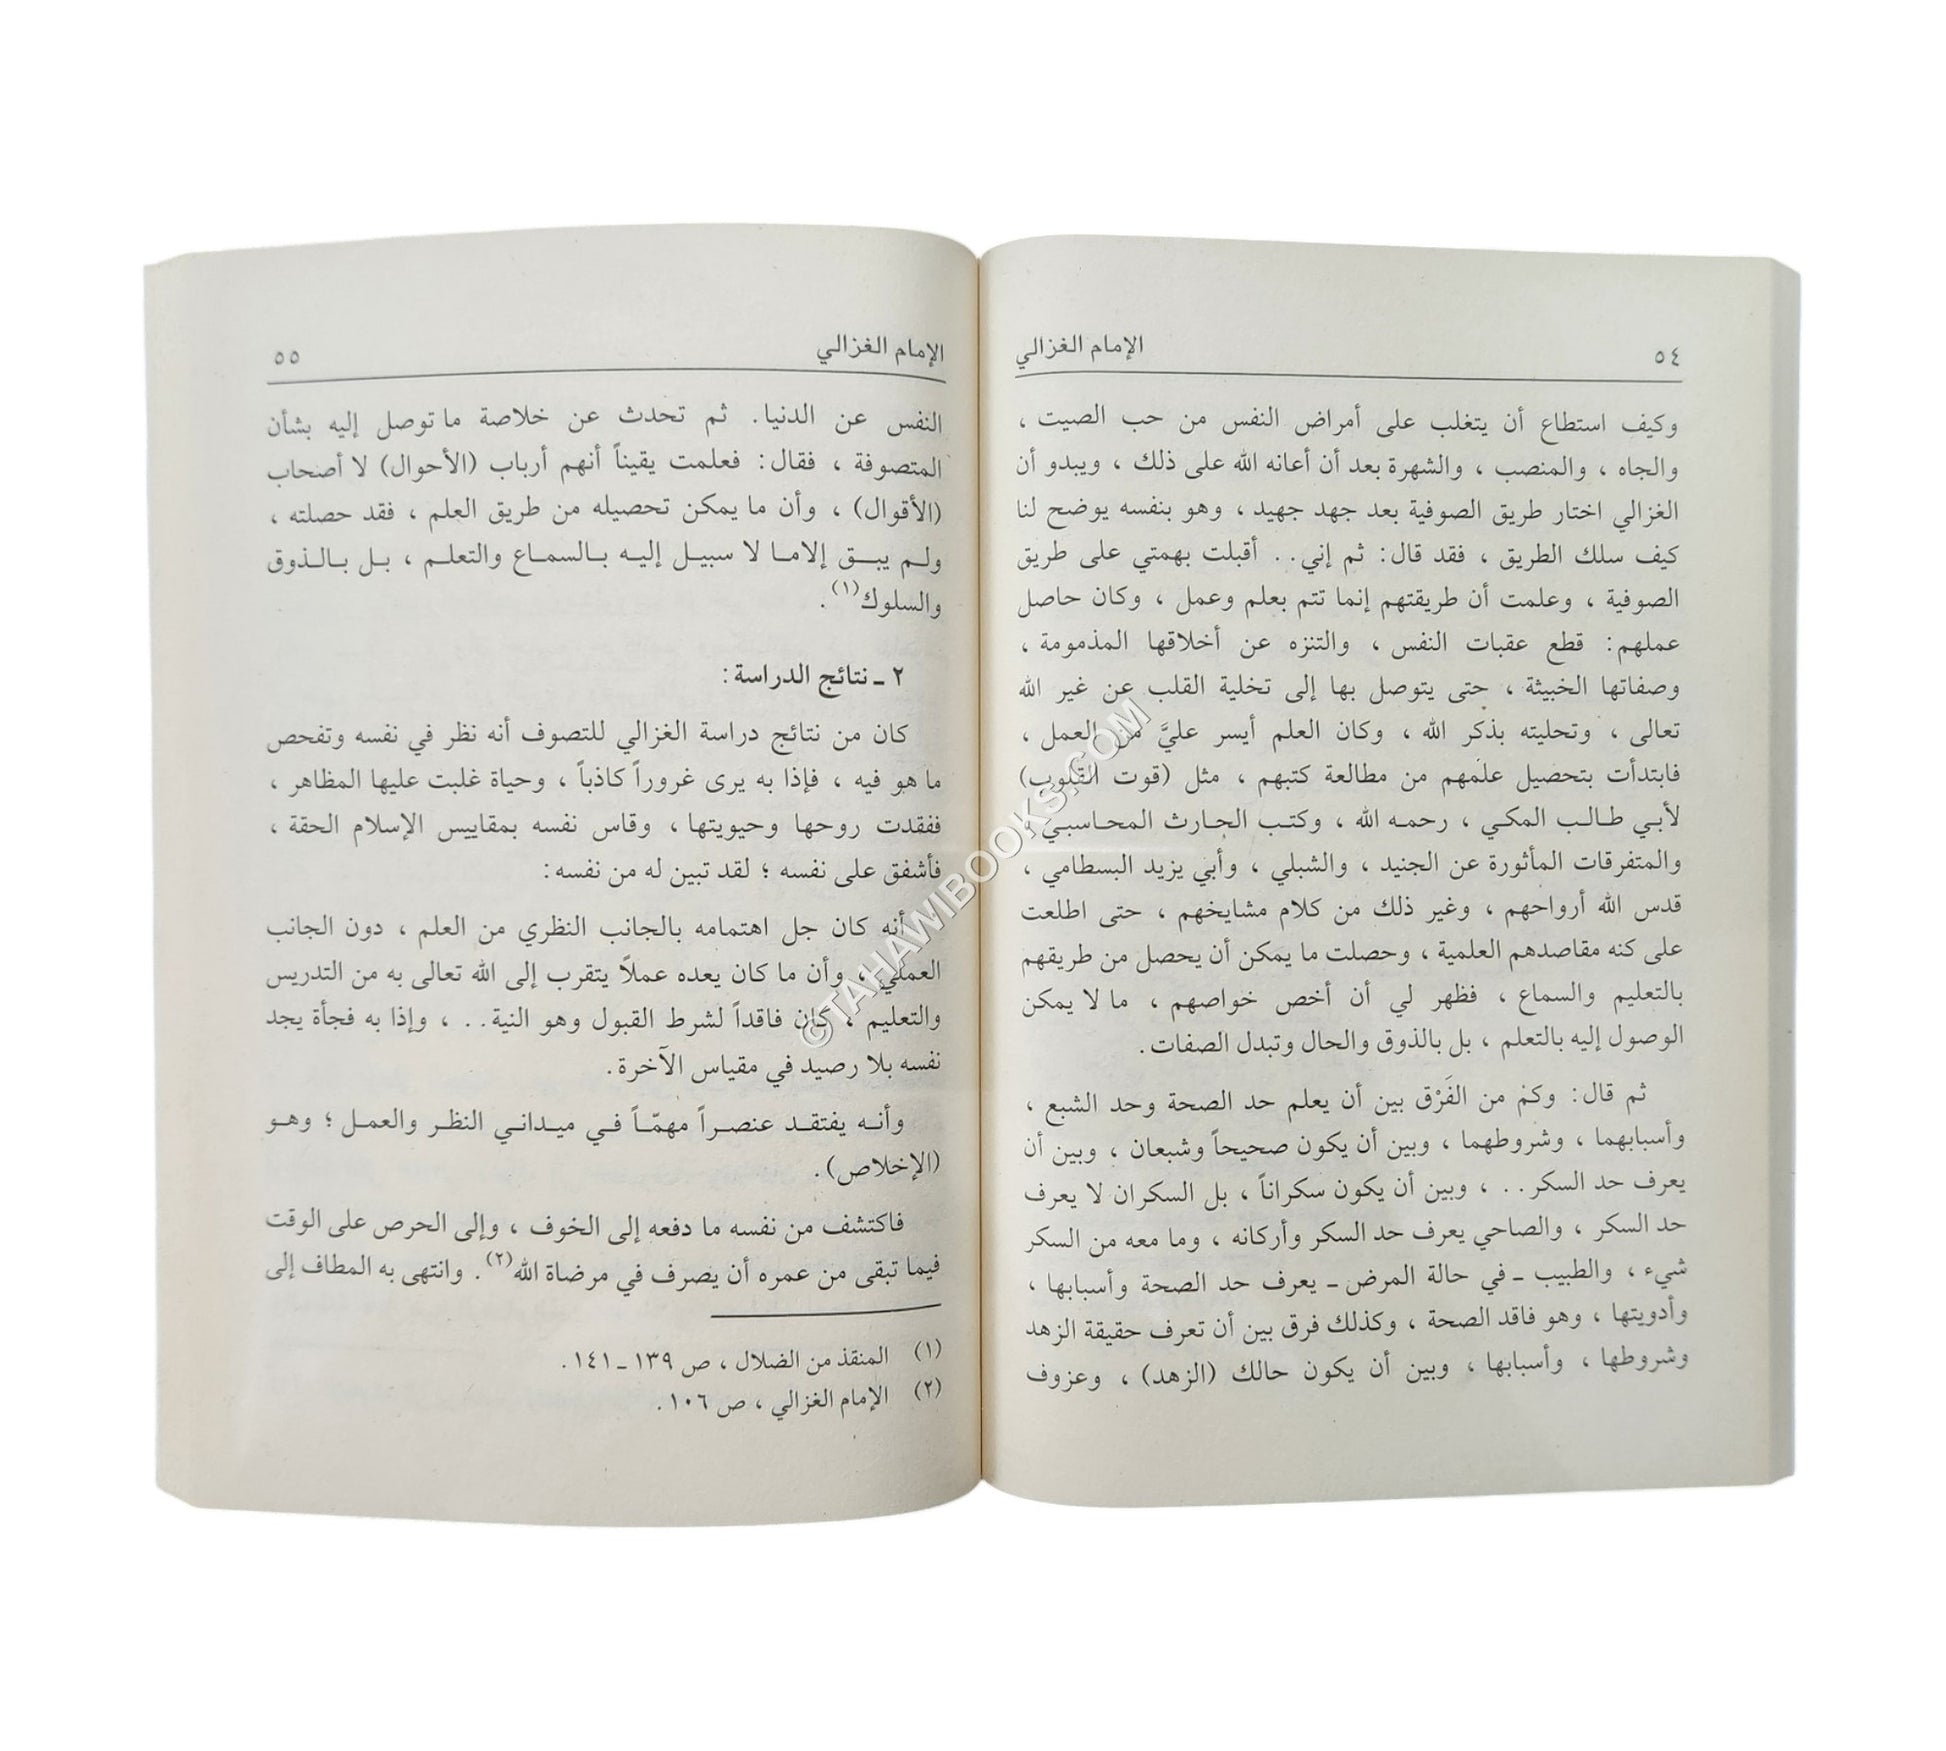 ٥٤ الإمام الغزالي
وكيف استطاع أن يتغلب على أمراض النفس من حب الصيت ،
والجاه ، والمنصب ، والشهرة بعد أن أعانه الله على ذلك ، ويبدو أن
الغزالي اختار طريق الصوفية بعد جهد جهيد ، وهو بنفسه يوضح لنا
كيف سلك الطريق ، فقد قال: ثم إني.. أقبلت بهمتي على طريق
الصوفية ، وعلمت أن طريقتهم إنما تتم بعلم وعمل ، وكان حاصل
عملهم: قطع عقبات النفس ، والتنزه عن أخلاقها المذمومة ،
وصفاتها الخبيثة ، حتى يتوصل بها إلى تخلية القلب عن غير الله
تعالى ، وتحليته بذكر الله ، وكان العلم أيسر عليَّ من العمل ،
فابتدأت بتحصيل علمهم من مطالعة كتبهم ، مثل (قوت القلوب)
لأبي طالب المكي ، رحمه الله ، وكتب الحارث المحاسبي ،
والمتفرقات المأثورة عن الجنيد ، والشبلي ، وأبي يزيد البسطامي ،
قدس الله أرواحهم ، وغير ذلك من كلام مشايخهم ، حتى اطلعت
على كنه مقاصدهم العلمية ، وحصلت ما يمكن أن يحصل من طريقهم
بالتعليم والسماع ، فظهر لي أن أخص خواصهم ، ما لا يمكن
الوصول إليه بالتعلم ، بل بالذوق والحال وتبدل الصفات.
ثم قال: وكم من الفَرْق بين أن يعلم حد الصحة وحد الشبع ،
وأسبابهما ، وشروطهما ، وبين أن يكون صحيحاً وشبعان ، وبين أن
يعرف حد السكر.. ، وبين أن يكون سكراناً ، بل السكران لا يعرف
حد السكر ، والصاحي يعرف حد السكر وأركانه ، وما معه من السكر
شيء ، والطبيب ـ في حالة المرض ـ يعرف حد الصحة وأسبابها ،
وأدويتها ، وهو فاقد الصحة ، وكذلك فرق بين أن تعرف حقيقة الزهد
وشروطها ، وأسبابها ، وبين أن يكون حالك (الزهد) ، وعزوف
الإمام الغزالي ٥٥
النفس عن الدنيا. ثم تحدث عن خلاصة ما توصل إليه بشأن
المتصوفة ، فقال: فعلمت يقيناً أنهم أرباب (الأحوال) لا أصحاب
(الأقوال) ، وأن ما يمكن تحصيله من طريق العلم ، فقد حصلته ،
ولم يبق إلا ما لا سبيل إليه بالسماع والتعلم ، بل بالذوق
والسلوك(١).
٢ ـ نتائج الدراسة:
كان من نتائج دراسة الغزالي للتصوف أنه نظر في نفسه وتفحص
ما هو فيه ، فإذا به يرى غروراً كاذباً ، وحياة غلبت عليها المظاهر ،
ففقدت روحها وحيويتها ، وقاس نفسه بمقاييس الإسلام الحقة ،
فأشفق على نفسه ؛ لقد تبين له من نفسه:
أنه كان جل اهتمامه بالجانب النظري من العلم ، دون الجانب
العملي ، وأن ما كان يعده عملاً يتقرب إلى الله تعالى به من التدريس
والتعليم ، كان فاقداً لشرط القبول وهو النية.. ، وإذا به فجأة يجد
نفسه بلا رصيد في مقياس الآخرة.
وأنه يفتقد عنصراً مهمّاً في ميداني النظر والعمل ؛ وهو
(الإخلاص).
فاكتشف من نفسه ما دفعه إلى الخوف ، وإلى الحرص على الوقت
فيما تبقى من عمره أن يصرف في مرضاة الله(٢). وانتهى به المطاف إلى
(١) المنقذ من الضلال ، ص ١٣٩ ـ ١٤١.
(٢) الإمام الغزالي ، ص ١٠٦.
©TAHAWIBOOKS.COM